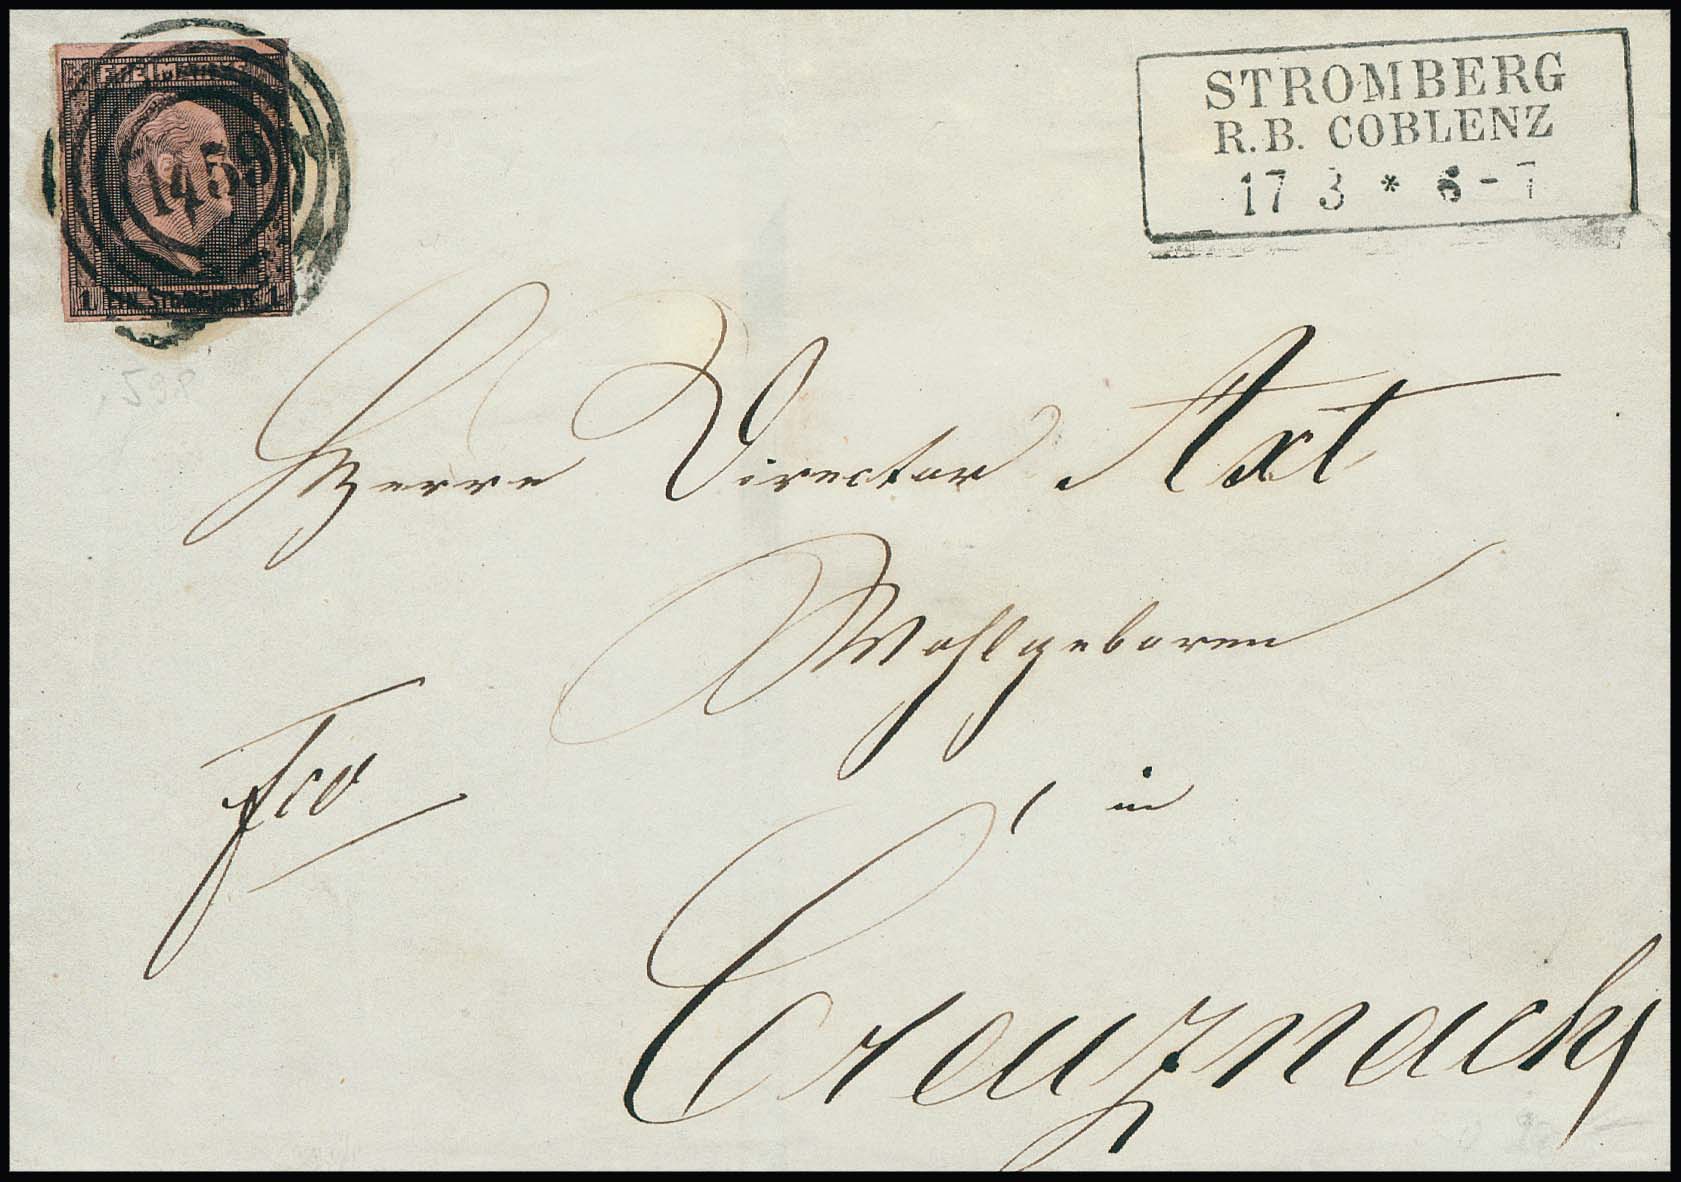 FREIMARKE
1459
1. EIN SILBERGR. 1.
STROMBERG
R.B. COBLENZ
17 3 * 6-7
Herrn Director Axt
Wohlgeboren
fco
in
Creuznach